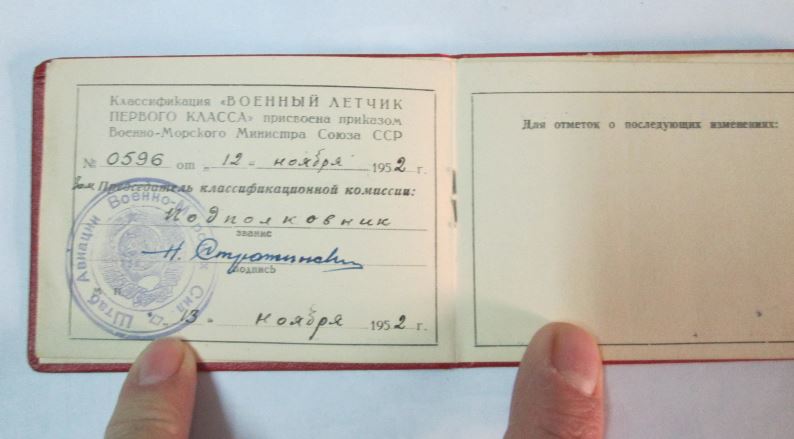 Классификация «ВОЕННЫЙ ЛЕТЧИК
ПЕРВОГО КЛАССА» присвоена приказом
Военно-Морского Министра Союза ССР
№ 0596 от „12" ноября 1952 г.
Зам Председатель классификационной комиссии:
Подполковник
звание
Н.
подпись
М. П.
„13" ноября 1952 г.
Штаб Авиации Военно-Морских Сил
Для отметок о последующих изменениях: